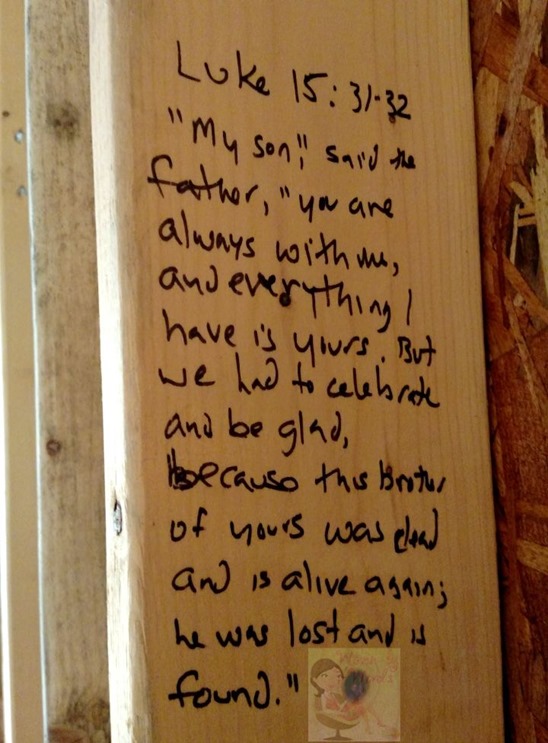 Luke 15:31-32
"My son," said the
father, "you are
always with me,
and everything I
have is yours. But
we had to celebrate
and be glad,
because this Brother
of yours was dead
and is alive again;
he was lost and is
found."